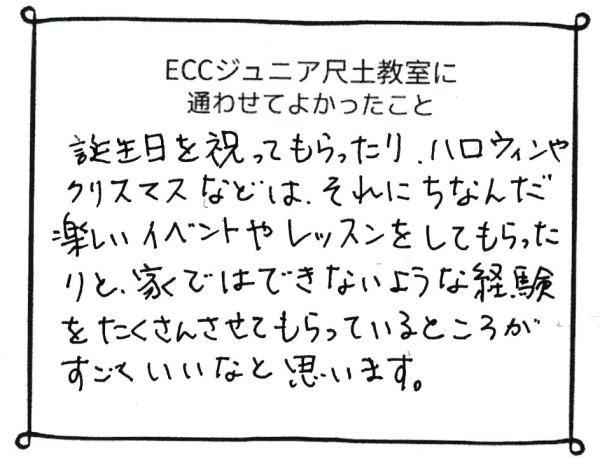 ECCジュニア尺土教室に
通わせてよかったこと
誕生日を祝ってもらったり、ハロウィンや
クリスマスなどは、それにちなんだ
楽しいイベントやレッスンをしてもらった
りと、家ではできないような経験
をたくさんさせてもらっているところが
すごくいいなと思います。